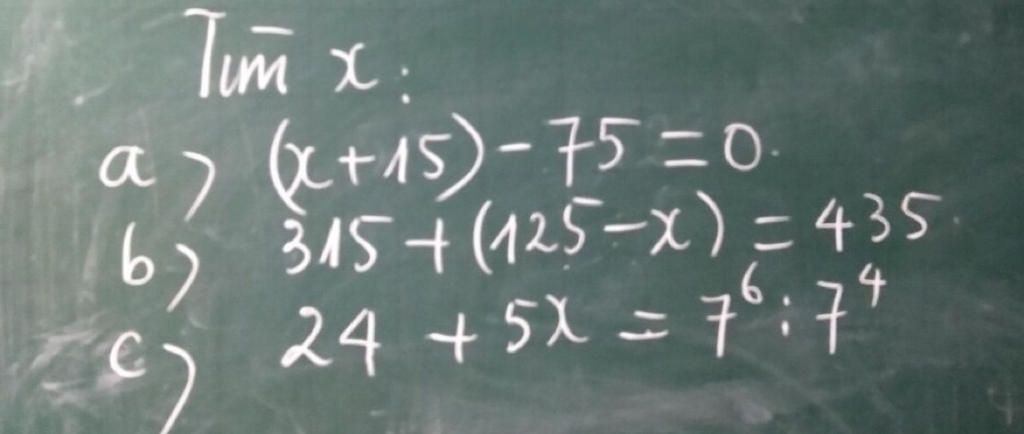 Tìm x:
a) (x+15) - 75 = 0.
b) 315 + (125 - x) = 435.
c) 24 + 5x = 7⁶ : 7⁴